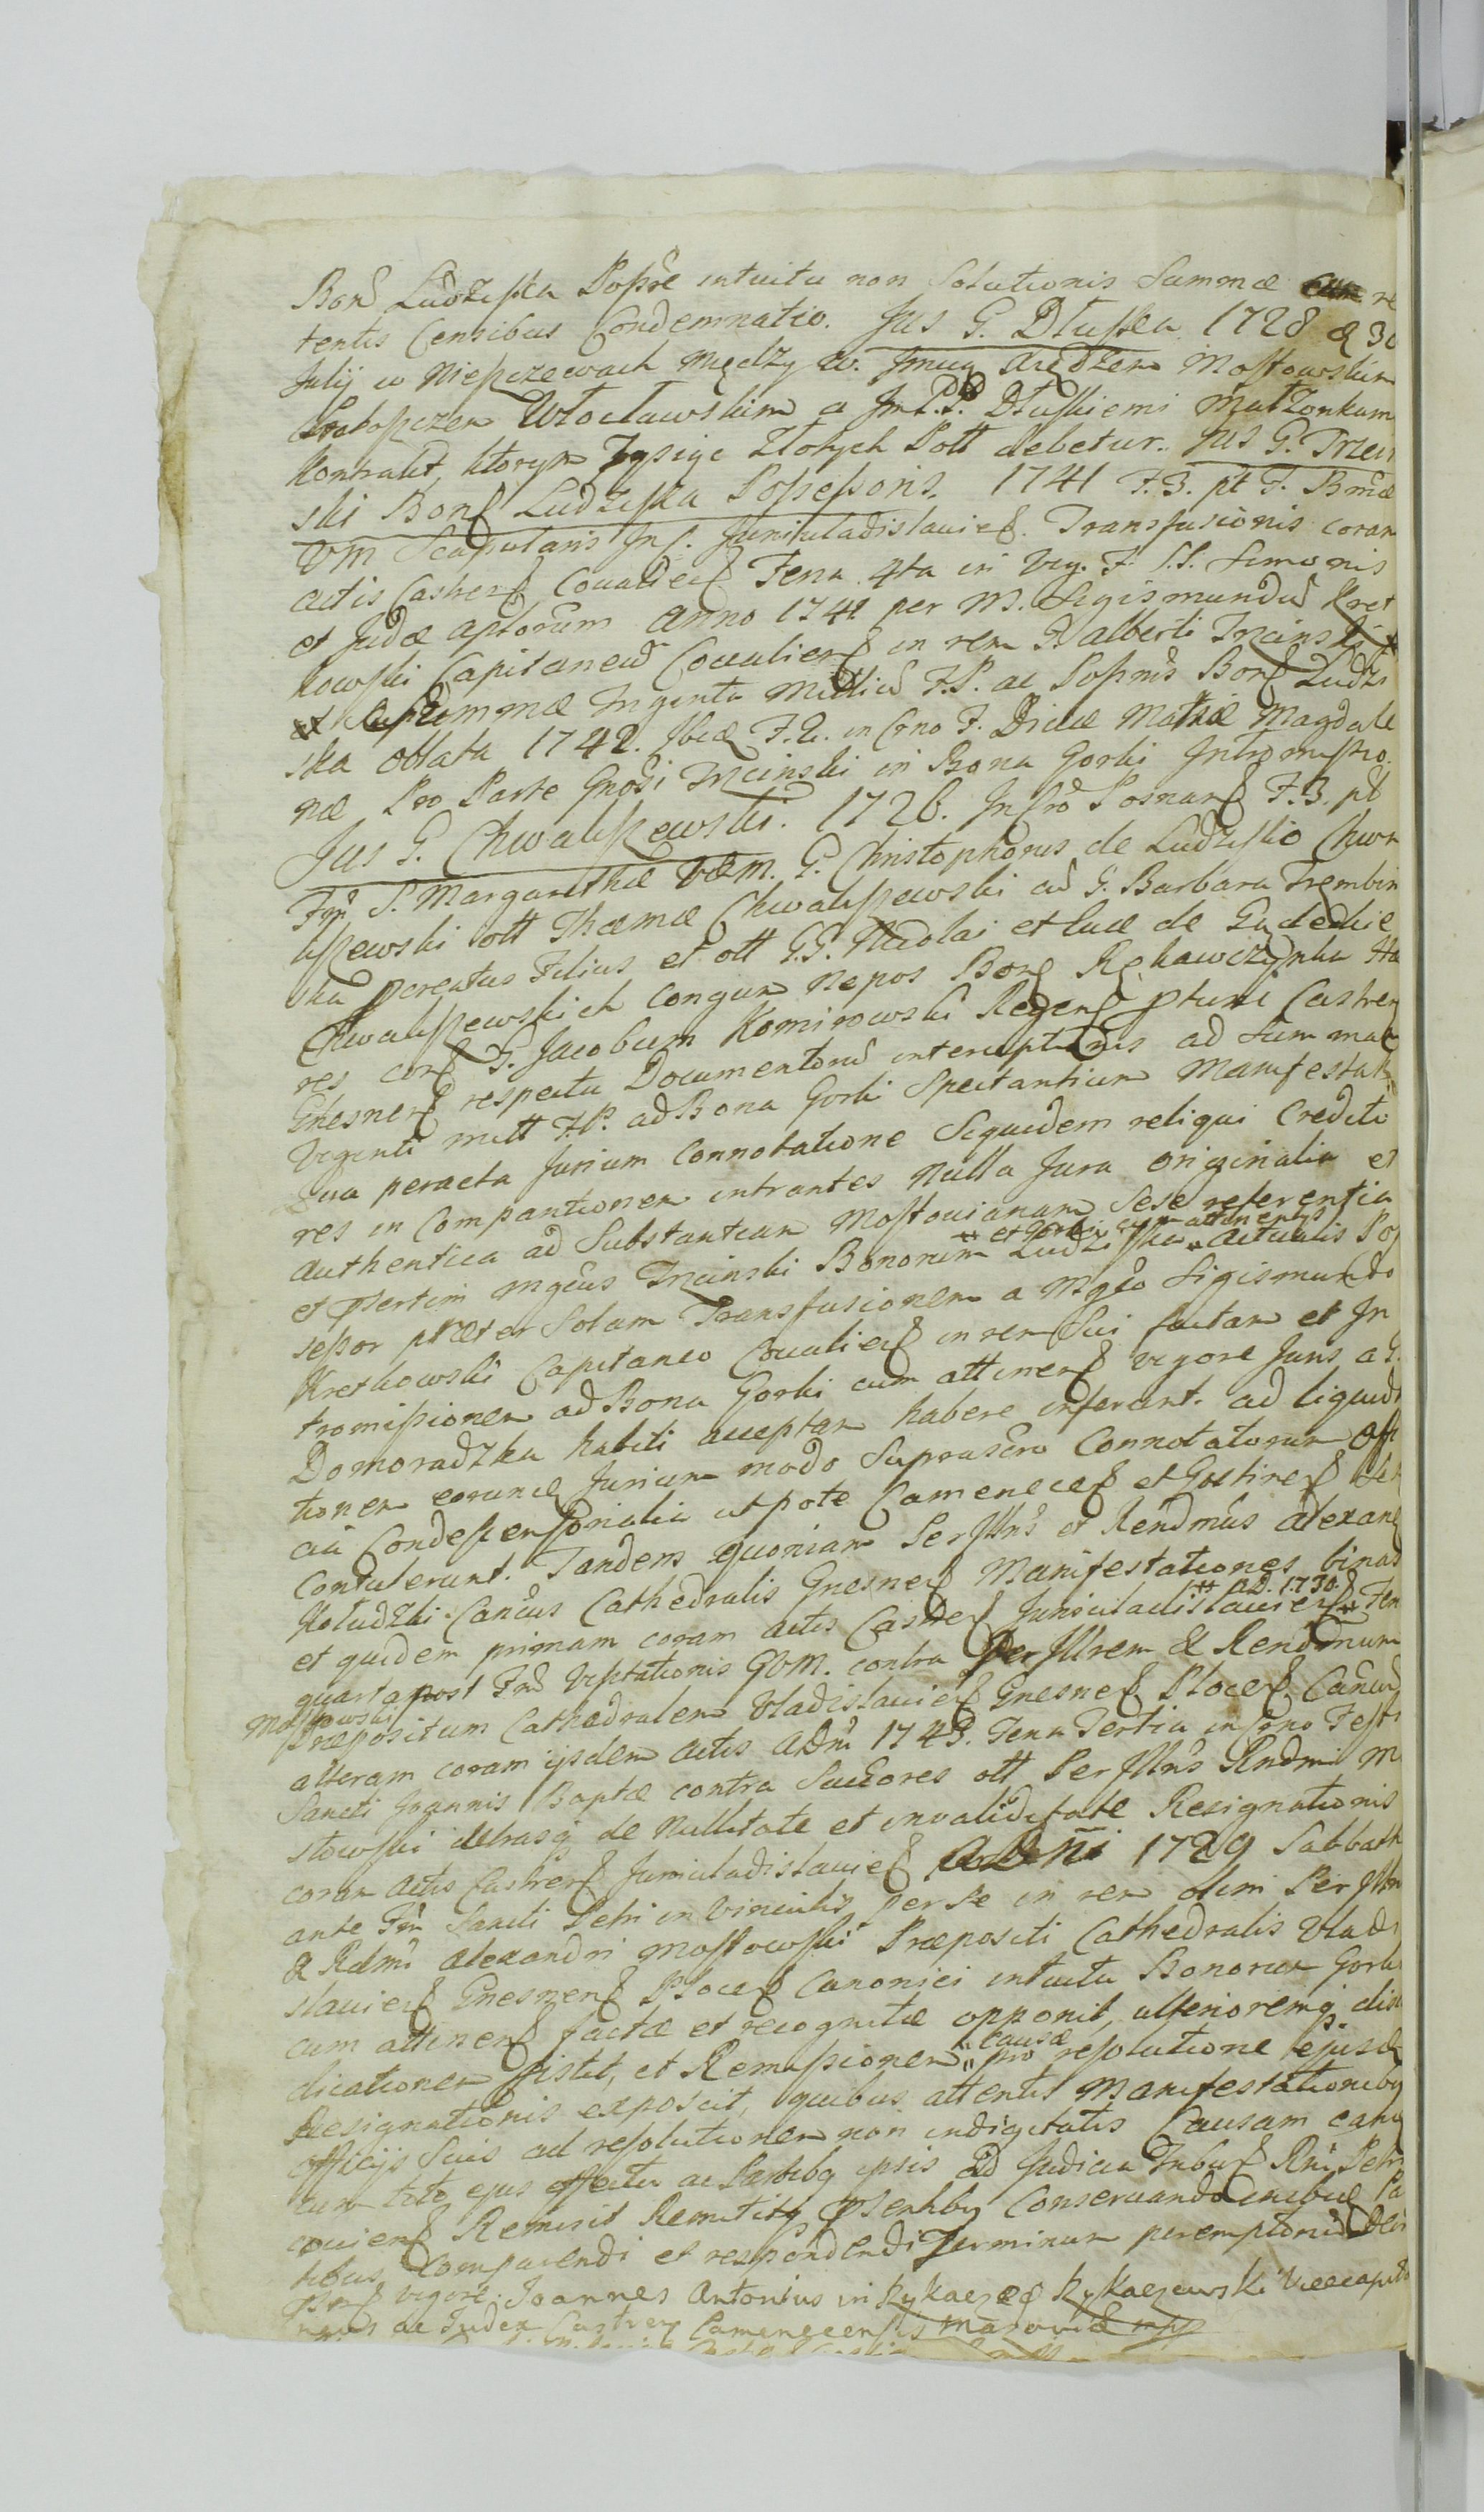 Bonð Ludziska Possre intuitu non Solutionis Summæ cum re
tentis Censibus Condemnatio. Jus G. Dłuska 1728 d 30
Julij w Niepczewach między w. Jmcią Xiędzem Mostowskim
Proboszczem Włocławskim a Jm P.P. Dłuskiemi Małżonkam
Kontrakt, ktorym Tysiąc Złotych Poll debetur. Jus G. Trzeci
ski Bonꝭ Ludziska Possessoris. 1741 F. 3. pt F. Bmæ
VM Scapularis Juniuladislavieꝭ. Transfusionis coram
actis Castreꝭ Covalieꝭ Feria 4ta in Vig. F. S.S. Simonis
et Judæ aptorum Anno 1741 per M. Sigismundū Kret
kowski Capitaneū Covalieꝭ in rem G. alberti Trzcinski
Summæ Triginta Milliū F.P. ac Possnis Bonꝭ Ludzi
ska oblata 1742. Ibid F. 2. in Crno F. Divæ Mariæ Magdale
næ Pro Parte Gnosi Trzcinski in Bona Gorki Intromissio.
Jus G. Chwaliszewski. 1726. Posnanꝭ F. 3. pt
Ftm S. Margarethæ VæM. G. Christophorus de Ludzisko Chwa
liszewski olt Thæmæ Chwaliszewski ad G. Barbara Trembin
ska pcreatus Filius et olt G.G. Nicolai et Lucæ de
Chwaliszewskich congun nepos Bonꝭ Rękawczynka Hæ
res conꝭ G. Jacobum Komirowski Regenꝭ Castren
Gnesnenꝭ respectu Documentorū interceptionis ad Summaꝭ
Viginti mill F.P. ad Bona Gorki Spectantium Manifestat
Qua peracta Jurium Connotatione Siquidem reliqui Credito
res in Compartionem intrantes nulla Jura originalia et
authentica ad Substantiam Mostovianam Sese referentia
et psertim mgcus Trzcinski Bonorum Ludzisko ** et Gorki cum attinentijs ** actualis Pos
sessor præter Solam Transfusionem a Mgco Sigismundo
Kretkowski Capitaneo Covalieꝭ in rem Sui factam et In
tromissionem ad Bona Gorki cum attinenꝭ vigore Juris a G.
Domoradzka habiti acceptam habere inferunt. ad liquida
tionem eorumꝗ Jurium modo Suprascro Connotatorum Offi
cia Condescensorialia utpote Camenecenꝭ et Gostinenꝭ Se
contulerunt. Tandem quoniam Per Jllris et Rendmus Alexand
Koludzki Cancus Cathedralis Gnesneꝭ Manifestationes binas
et quidem primam coram actis Castreꝭ Juniuladislavieꝭ ** AD. 1730. ** Feria
quarta post Ftm Visitationis GVM. contra Per Jllrem & Rendmum
Mostowski Præpositum Cathedralem Vladislavieꝭ Gnesneꝭ Płoceꝭ Cancum
alteram coram ijsdem Actis ADni 1743. Feria Tertia in Crno Festi
Sancti Joannis Baptæ contra Succores olt Per Jllris Rndmi Mo
stowski de Nullitate et invaliditate Resignationis
coram Actis Castreꝭ Juniuladislavieꝭ ADni 1729 Sabbath
ante Ftm Sancti Petri in Vinculis per se in rem olim Per Jllris
& Rdmi Alexandri Mostowski Præpositi Cathedralis Vladi
slavieꝭ Gnesnenꝭ Płoceꝭ Canonici intuitu Bonorum Gorki
cum attinenꝭ factæ et recognitæ opponit, ulterioremꝗ diiu
dicationem sistit, et Remissionem " causæ " pro resolutione ejusd
Resignationis exposcit, quibus attentis Manifestationiby
officijs Suis ad resolutionem non indigitatis Causam eanꝗ
cum toto ejus effectu ac Partibꝗ ipsis ad Judicia Tribuꝭ Rni Petri
covienꝭ Remisit Remititꝗ psentiby Conservando inibiꝗ Pa
rtibus Comparendi et respondendi Terminum peremptoriū
vigore. Joannes Antonius in Rykaczeꝭ Rykaczewski Vicecapita
neus ac Judex Castren Camenecensis Masoviæ mpp